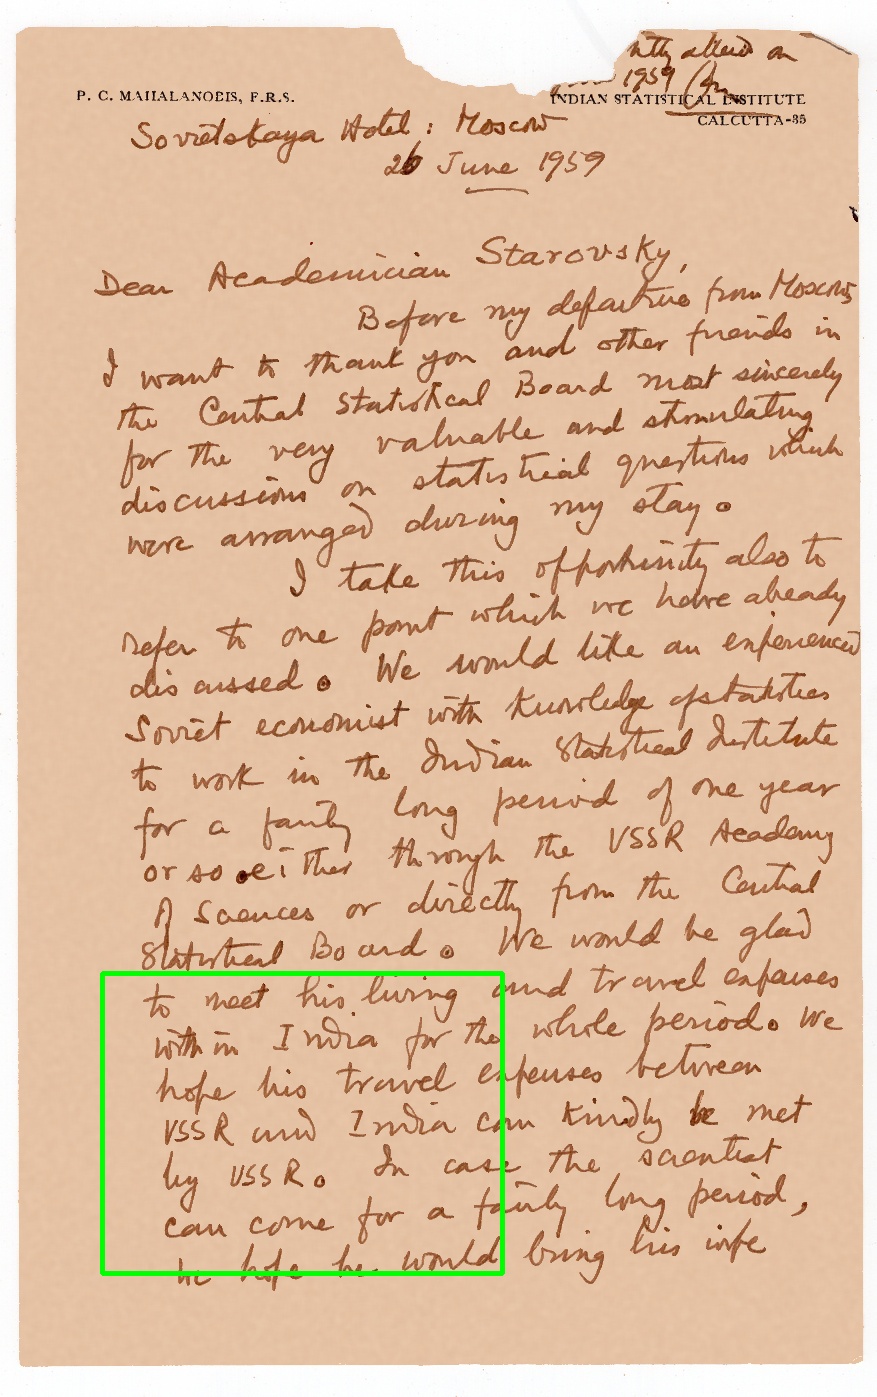 ntly alled on
1959
P. C. MAHALANOBIS, F.R.S.
INDIAN STATISTICAL INSTITUTE
CALCUTTA-35
Sovietskaya Hotel : Moscow
26 June 1959
Dear Academician Starovsky,
Before my departure from Moscow,
I want to thank you and other friends in
the Central Statistical Board most sincerely
for the very valuable and stimulating
discussions on statistical questions which
were arranged during my stay.
I take this opportunity also to
refer to one point which we have already
discussed. We would like an experienced
Soviet economist with knowledge of statistics
to work in the Indian Statistical Institute
for a fairly long period of one year
or so either through the USSR Academy
of Sciences or directly from the Central
Statistical Board. We would be glad
to meet his living and travel expenses
within India for the whole period. We
hope his travel expenses between
USSR and India can kindly be met
by USSR. In case the scientist
can come for a fairly long period,
we hope he would bring his wife